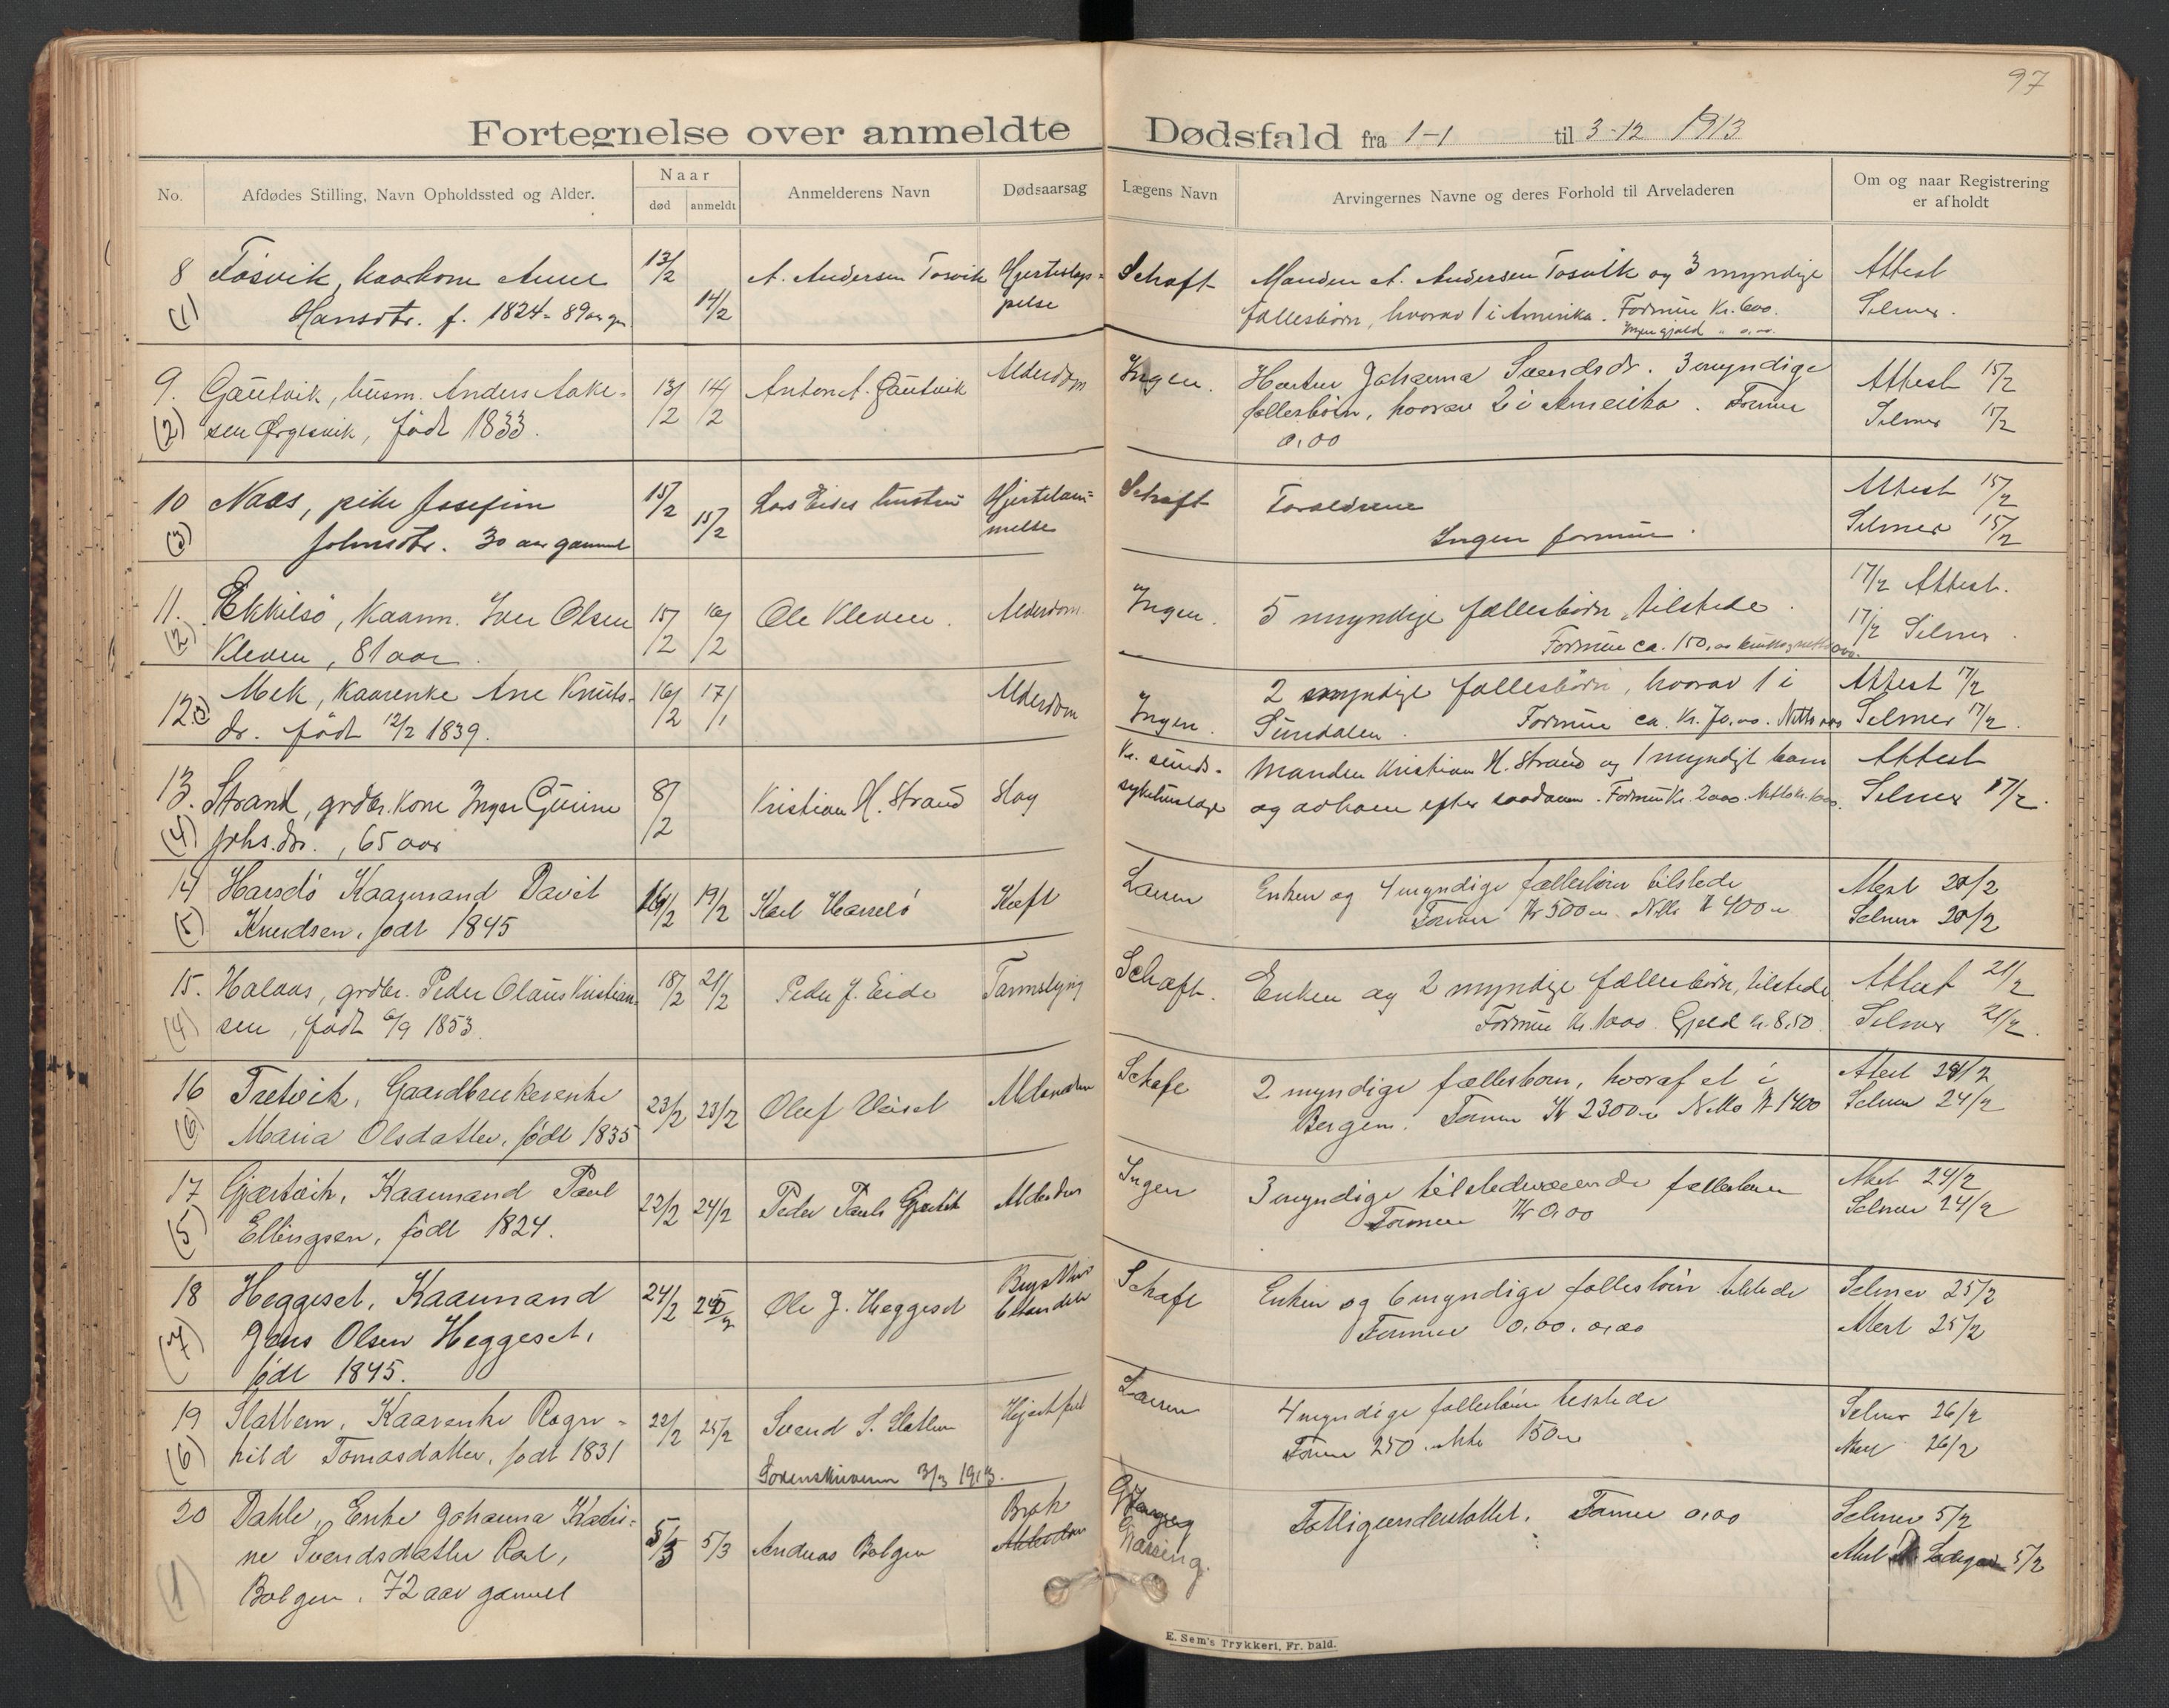 97
Fortegnelse over anmeldte Dødsfald fra 1-1 til 3-12 1913
No.
Afdødes Stilling, Navn Opholdssted og Alder.
Naar
død
anmeldt
Anmelderens Navn
Dødsaarsag
Lægens Navn
Arvingernes Navne og deres Forhold til Arveladeren
Om og naar Registrering
er afholdt
8 Tøsvik, kaarkone Anne 13/2 A. Andersen Tosvik Hjerteslap- Schaft Manden A. Andersen Tosvik og 3 myndige Attest
(1) Hansdtr. f. 1824 - 89 aar gm. 14/2 pelse fællesbørn, hvorav 1 i Amerika. Formue Kr. 600. Selmer.
Ingen gjæld " 0,00.
9. Gautvik, husm. Anders Aake- 13/2 14/2 Anton A. Gautvik Alderdom Ingen. Johanna Svendsdr. 3 myndige Attest 15/2
(2) sen Ørgesvik, født 1833. fællesbørn, hvorav 2 i Amerika. Formue Selmer 17/2
0,00
10 Naas, pike Josefine 15/2 Lars Eides hustru Hjertelam- Schaft Forældrene Attest 15/2
(3) Johnsdtr. 30 aar gammel 15/2 melse Ingen formue. Selmer 15/2
11. Ekkilsø, Kaarm. Iver Olsen 15/2 16/2 Ole Kleven. Alderdom. Ingen. 5 myndige fællesbørn, tilstede. 17/2 Attest.
(2) Kleven, 81 aar. Formue ca. 150,00 17/2 Selmer.
12. (3) Mek, Kaarenke Ane Knuts- 16/2 17/1 Alderdom Ingen. 2 myndige fællesbørn, hvorav 1 i Attest 17/2
dr. født 12/2 1839. Sundalen. Formue ca. Kr. 70,00. Netto 0,00 Selmer 17/2.
13. Strand, grdbr. kone Inger Gurine 8/2 Kristian H. Strand Slag Kr. sunds- Manden Kristian H. Strand og 1 myndigt barn Attest
(4) Johs.dr., 65 aar sykehuslæge og avkom efter saadann. Formue Kr. 2000. Selmer 17/2.
14 Harsdø Kaarmand Davit 16/2 19/2 Karl Harselø Kræft Larsen Enken og 4 myndige fællesbørn tilstede Attest 20/2
(5) Knudsen, født 1845 Formue Kr 500,- Netto Kr 400,- Selmer 20/2
15. Halaas, grdbr. Peder Olaus Kristian- 18/2 21/2 Peder J. Eide Tarmslyng Schaft. Enken og 2 myndige fællesbørn, tilstede Attest 21/2
(4) sen, født 6/9 1853. Formue Kr. 1000. Gjæld kr. 8,50. Selmer 21/2.
16 Tretvik, Gaardbrukerenke 23/2 23/2 Oluf Alderdom Schaft 2 myndige fællesbørn, hvoraf et i Attest 24/2
(6) Maria Olsdatter, født 1835 Bergen. Formue Kr 2300,- Netto Kr 1400 Selmer 24/2
17 Gjærtvik, Kaarmand Paul 22/2 24/2 Peder Pauls Gjertvik Alderdom Ingen 3 myndige tilstedeværende fællesbørn Attest 24/2
(5) Ellingsen, født 1824. Formue Kr 0,00 Selmer 24/2
18 Heggeset, Kaarmand 24/2 25/2 Ole J. Heggeset Schaft Enken og 6 myndige fællesbørn tilstede Selmer 25/2
(7) Jens Olsen Heggeset, Formue 0,00. 0,00 Attest 25/2
født 1845.
19 Slatlem, Kaarenke Ragn- 22/2 25/2 Svend S. Slatlem Hjertefeil Larsen 4 myndige fællesbørn tilstede Selmer 26/2
(6) hild Tomasdatter, født 1831 Formue 250. Netto 150,- Attest 26/2
Sorenskriveren 3/3 1913.
20 Dahle, Enke Johanna Katri- 5/3 5/3 Andreas Bolgen Brok Fattigunderstøttet. Formue 0,00 Selmer 5/2
ne Svendsdatter Alderdom Attest 5/2
(1) Bolgen. 72 aar gammel
E. Sem's Trykkeri, Fr. hald.